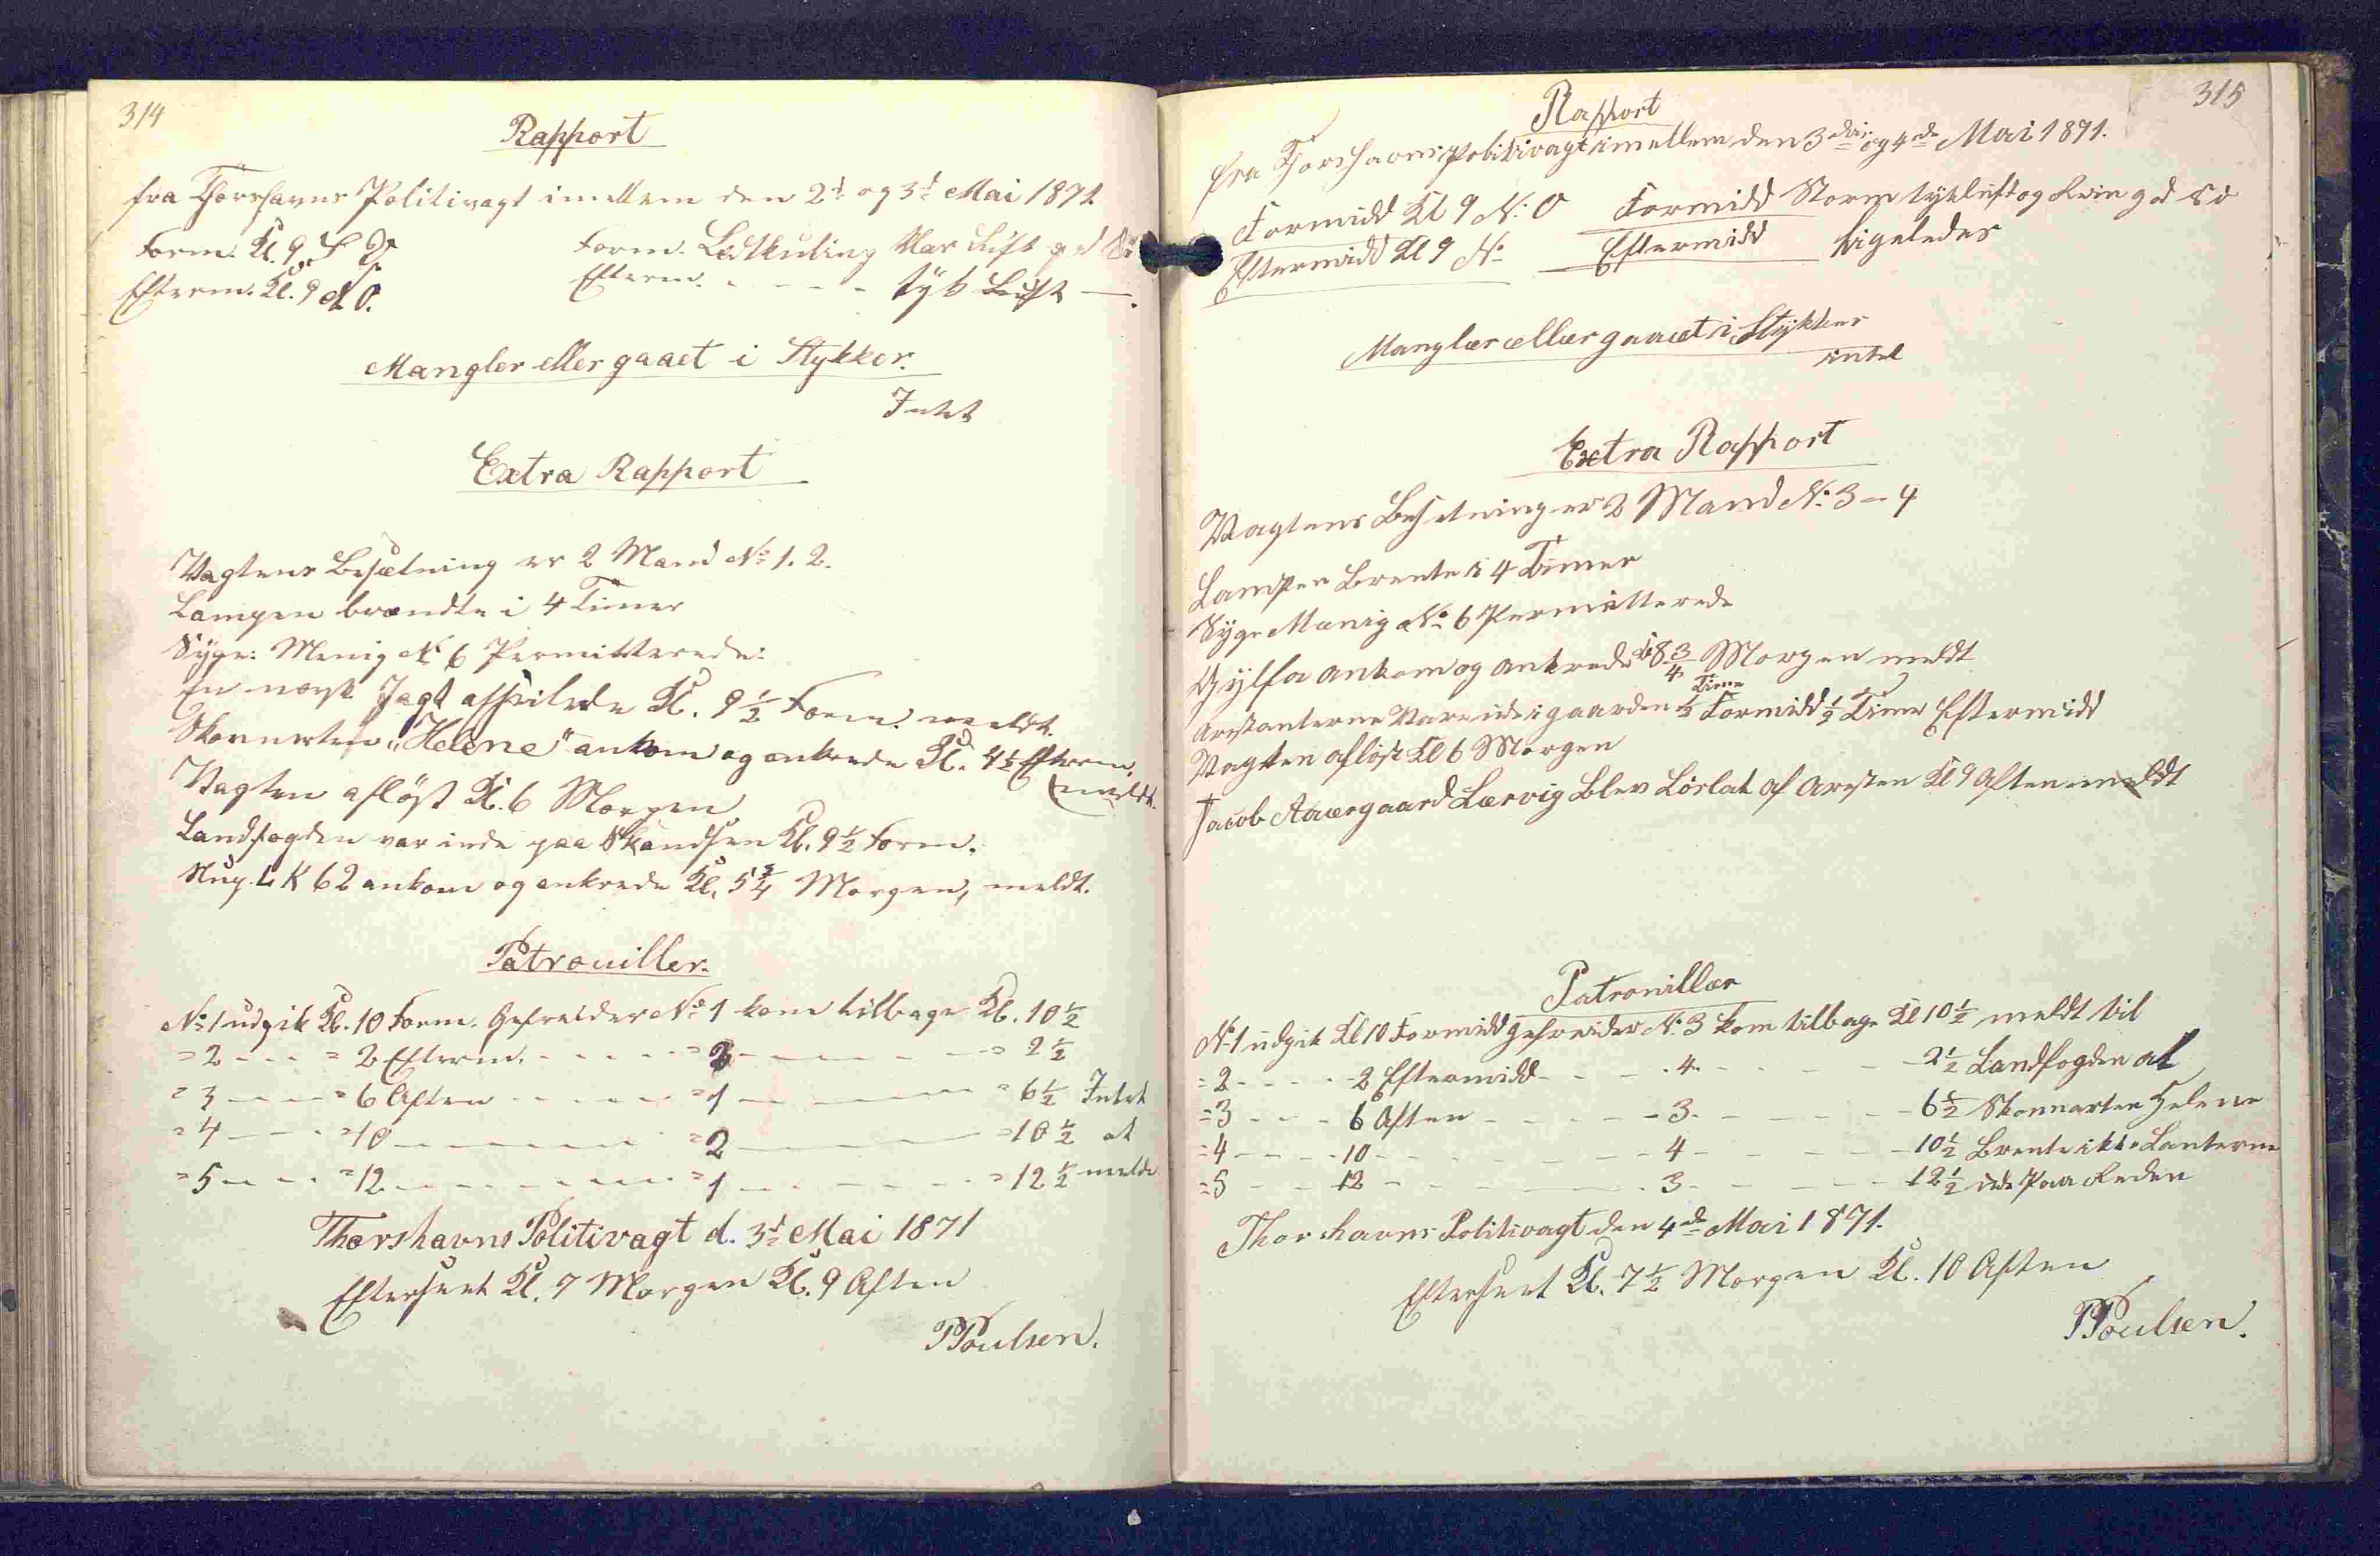 314
Rapport
fra Thorshavns Politivagt imellem den 2d og 3d Mai 1871
Form. Kl. 9 S. O. Form. Ladkuling klar Luft og
Efterm. Kl. 9 N. O. Efterm. - - - - tyk Luft — .
Mangler eller gaaet i Stykker.
Intet
Extra Rapport
Vagtens Besætning er 2 Mand No 1. 2.
Lampen brændte i 4 Timer
Syge: Menig No 6 Permitterede:
En norsk Jagt afseilede Kl. 9 1/2 Form. meldt.
Skonnerten "Helene" ankom og ankrede Kl. 4 1/2 Efterm.
meldt.
Vagten afløst Kl. 6 Morgen
Landfogden var inde paa Skandsen Kl. 9 1/2 Form.
Slup. L K 62 ankom og ankrede Kl. 5 3/4 Morgen, meldt.
Patrouiller.
No 1 udgik Kl. 10 Form. Gefreider No 1 kom tilbage Kl. 10 1/2
= 2 - - - = 2 Efterm. - - - - = 2 - - - - = 2 1/2
= 3 - - - = 6 Aften - - - - = 1 - - - - = 6 1/2 Intet
= 4 - - - = 10 - - - - = 2 - - - - = 10 1/2 at
= 5 - - - = 12 - - - - = 1 - - - - = 12 1/2 melde
Thorshavns Politivagt d. 3d Mai 1871
Efterseet Kl. 7 Morgen Kl. 9 Aften
PPoulsen.
315
Rapport
fra Thorshavns Politivagt imellem den 3die og 4de Mai 1871.
Formidd Kl 9 N. O Formidd Storm tykluft og Rein
Eftermidd Kl 9 No Eftermidd ligeledes
Mangler eller gaaet i Stykker
intet
Extra Rapport
Vagtens Besetning er 2 Mand No 3 - 4
Lampen Brente i 4 Timer
Syge Menig No 6 Permitterede
Gylfa ankom og ankrede kl 8 3/4 Morgen meldt
Arestanterne Vare ude i gaarden 1/2 Time Formidd 1/2 Time Eftermidd
Vagten afløst Kl 6 Morgen
Jacob Aaergaard Lervig Blev Løslat af Aresten Kl 9 Aften meldt
Patrouiller
No 1 udgik Kl 10 Formidd gefreider No 3 kom tilbage Kl 10 1/2 meldt til
= 2 - - - - 2 Eftermidd - - - - 4 - - - - 2 1/2 Landfogden at
= 3 - - - 6 Aften - - - - 3 - - - - 6 1/2 Skonnerten Helene
= 4 - - - - 10 - - - - 4 - - - - 10 1/2 Brente ikke Lanterne
= 5 - - - 12 - - - - 3 - - - - 12 1/2 ude Paa Reden
Thorshavns Politivagt den 4de Mai 1871.
Efterseet Kl. 7 1/2 Morgen Kl. 10 Aften
PPoulsen.